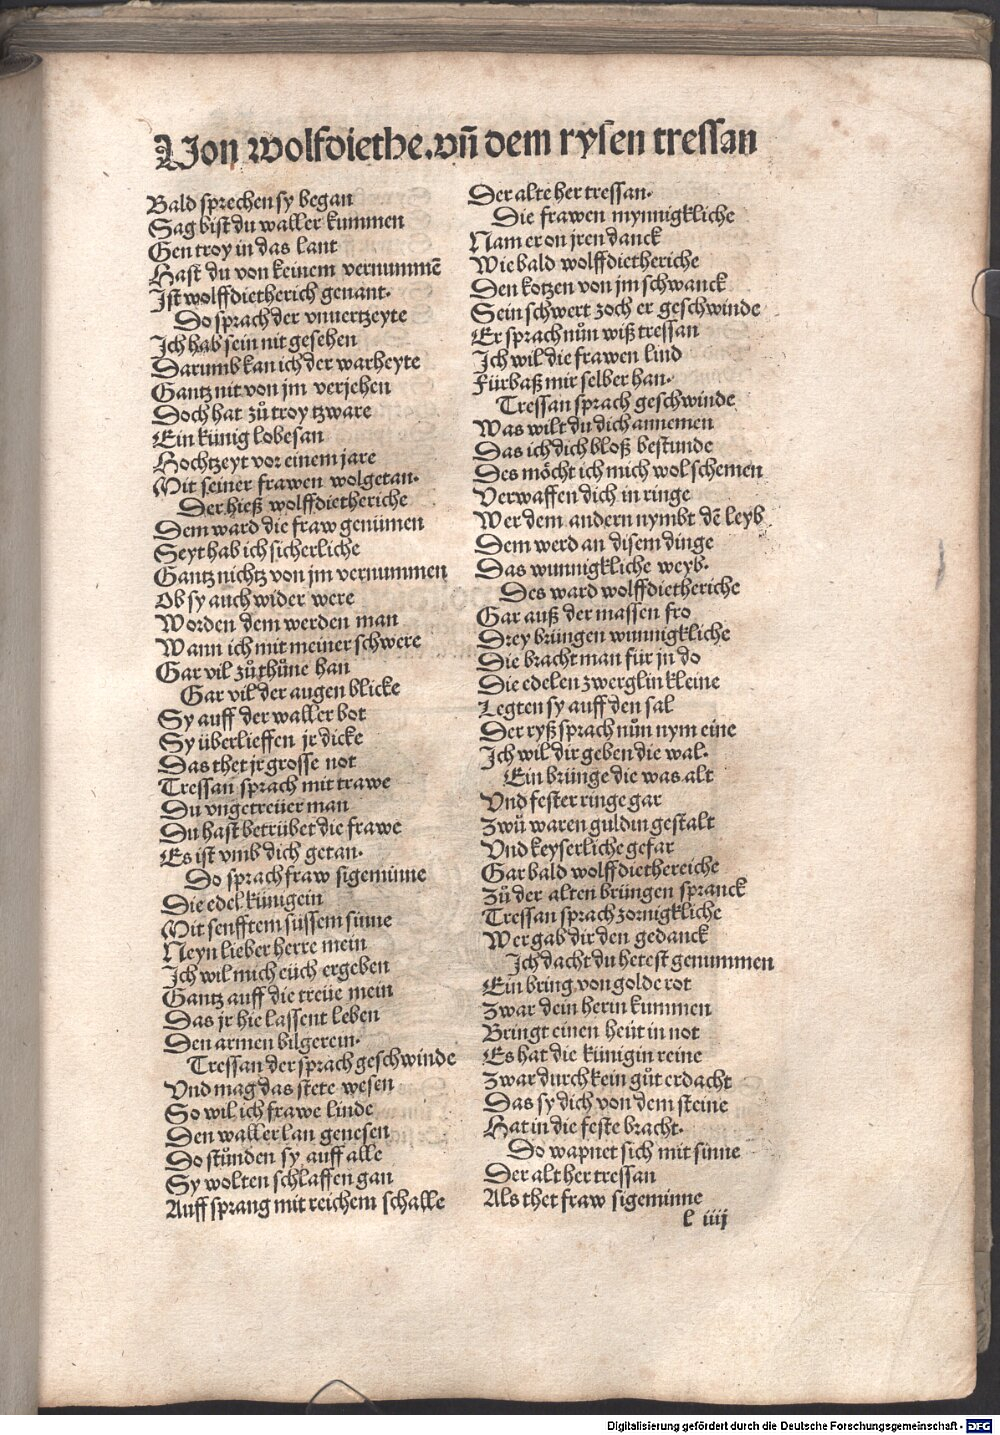 Von wolfdiethe. vñ dem rysen tressan
Bald sprechen sy began
Sag bist du waller kummen
Gen troy in das lant
Hast du von keinem vernummē
Jst wolffdietherich genant.
Do sprach der vnuertzeyte
Jch hab sein nit gesehen
Darumb kan ich der warheyte
Gantz nit von jm verjehen
Doch hat zů troy tzware
Ein künig lobesan
Hochtzeyt vor einem jare
Mit seiner frawen wolgetan.
Der hieß wolffdietheriche
Dem ward die fraw genümen
Seyt hab ich sicherliche
Gantz nichtz von jm vernummen
Ob sy auch wider were
Worden dem werden man
Wann ich mit meiner schwere
Gar vil zů thůne han
Gar vil der augen blicke
Sy auff der waller bot
Sy überlieffen jr dicke
Das thet jr grosse not
Tressan sprach mit trawe
Du vngetreüer man
Du hast betrübet die frawe
Es ist vmb dich getan.
Do sprach fraw sigemünne
Die edel künigein
Mit senfftem süssem sinne
Neyn lieber herre mein
Jch wil mich eüch ergeben
Gantz auff die treüe mein
Das jr hie lassent leben
Den armen bilgerein.
Tressan der sprach geschwinde
Vnd mag das stete wesen
So wil ich frawe linde
Den waller lan genesen
Do stůnden sy auff alle
Sy wolten schlaffen gan
Auff sprang mit reichem schalle
Der alte her tressan.
Die frawen mynnigkliche
Nam er on jren danck
Wie bald wolffdietheriche
Den kotzen von jm schwanck
Sein schwert zoch er geschwinde
Er sprach nůn wiß tressan
Jch wil die frawen lind
Fürbaß mir selber han.
Tressan sprach geschwinde
Was wilt du dich annemen
Das ich dich bloß bestunde
Des möcht ich mich wol schemen
Verwaffen dich in ringe
Wer dem andern nymbt dē leyb
Dem werd an disem dinge
Das wunnigkliche weyb.
Des ward wolffdietheriche
Gar auß der massen fro
Drey brüngen wunnigkliche
Die bracht man für jn do
Die edelen zwerglin kleine
Legten sy auff den sal
Der ryß sprach nůn nym eine
Jch wil dir geben die wal.
Ein brünge die was alt
Vnd fester ringe gar
Zwů waren guldin gestalt
Vnd keyserliche gefar
Gar bald wolffdiethereiche
Zů der alten brüngen spranck
Tressan sprach zornigkliche
Wer gab dir den gedanck
Jch dacht du hetest genummen
Ein bring von golde rot
Zwar dein herin kummen
Bringt einen heüt in not
Es hat die künigin reine
Zwar durch kein gůt erdacht
Das sy dich von dem steine
Hat in die feste bracht.
Do wapnet sich mit sinne
Der alt her tressan
Als thet fraw sigeminne
l iiij
Digitalisierung gefördert durch die Deutsche Forschungsgemeinschaft - DFG